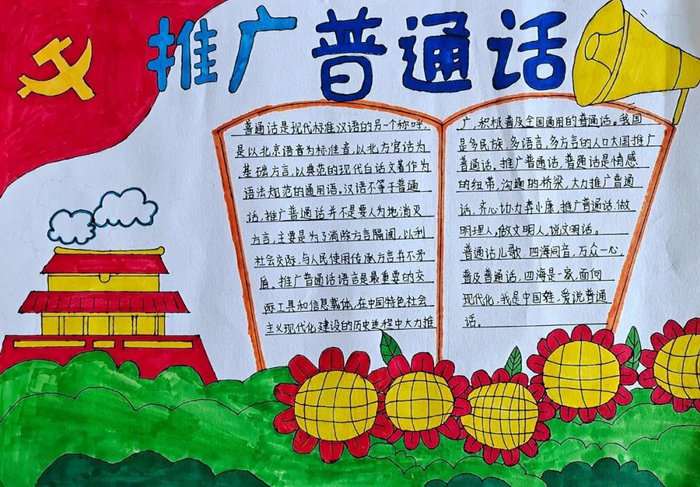 推广普通话
普通话是现代标准汉语的另一个称呼,
是以北京语音为标准音,以北方官话为
基础方言,以典范的现代白话文著作为
语法规范的通用语,汉语不等于普通
话,推广普通话并不是要人为地消灭
方言,主要是为了消除方言隔阂,以利
社会交际,与人民使用传承方言并不矛
盾。推广普通话语言是最重要的交
际工具和信息载体,在中国特色社会
主义现代化建设的历史进程中大力推
广,积极普及全国通用的普通话。我国
是多民族,多语言,多方言的人口大国推广
普通话,推广普通话,普通话是情感
的纽带,沟通的桥梁,大力推广普通
话,齐心协力奔小康,推广普通话,做
明理人,做文明人,说文明话。
普通话儿歌,四海同音,万众一心,
普及普通话,四海是一家,面向
现代化,我是中国娃,爱说普通
话。